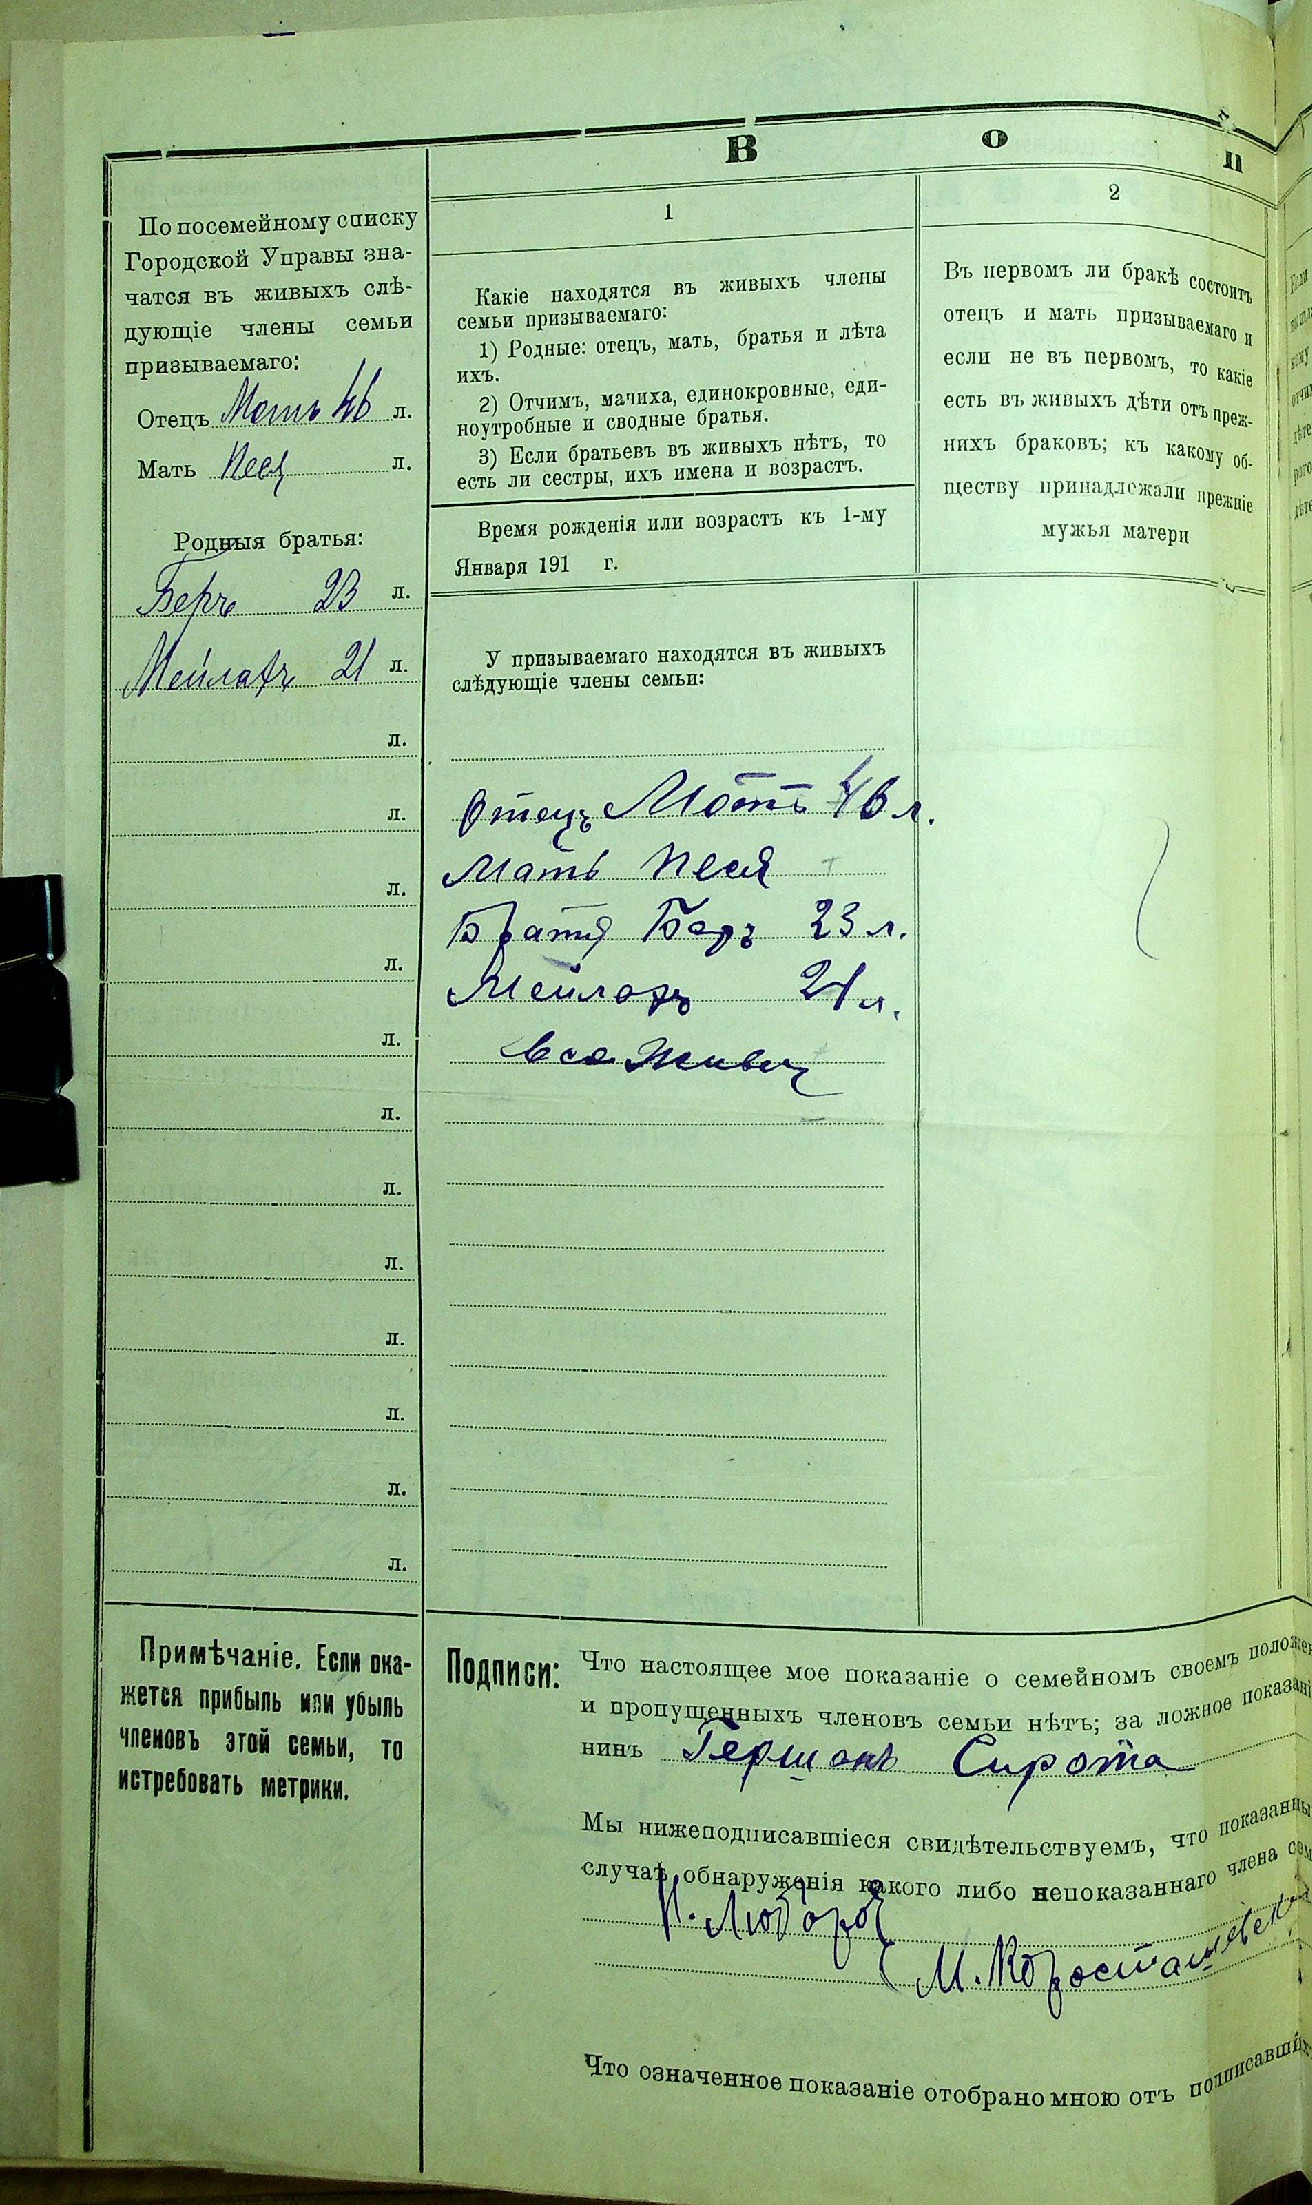 В о п
По посемейному списку
Городской Управы зна-
чатся въ живыхъ слѣ-
дующіе члены семьи
призываемаго:
Отецъ Моть 46 л.
Мать Песя л.
Родныя братья:
Беръ 23 л.
Мейлахъ 21 л.
л.
л.
л.
л.
л.
л.
л.
л.
л.
л.
л.
л.
1
Какіе находятся въ живыхъ члены
семьи призываемаго:
1) Родные: отецъ, мать, братья и лѣта
ихъ.
2) Отчимъ, мачиха, единокровные, еди-
ноутробные и сводные братья.
3) Если братьевъ въ живыхъ нѣтъ, то
есть ли сестры, ихъ имена и возрастъ.
Время рожденія или возрастъ къ 1-му
Января 191 г.
У призываемаго находятся въ живыхъ
слѣдующіе члены семьи:
Отецъ Моть 46 л.
Мать Песя
Братья Беръ 23 л.
Мейлахъ 21 л.
все живы
2
Въ первомъ ли бракѣ состоитъ
отецъ и мать призываемаго и
если не въ первомъ, то какіе
есть въ живыхъ дѣти отъ преж-
нихъ браковъ; къ какому об-
ществу принадлежали прежніе
мужья матери
Примѣчаніе. Если ока-
жется прибыль или убыль
членовъ этой семьи, то
истребовать метрики.
Подписи: Что настоящее мое показаніе о семейномъ своемъ положен
и пропущенныхъ членовъ семьи нѣтъ; за ложное показані
нинъ Гершонъ Сирота
Мы нижеподписавшіеся свидѣтельствуемъ, что показанны
случаѣ обнаруженія какого либо непоказаннаго члена сем
М. Коросташевск
Что означенное показаніе отобрано мною отъ подписавших